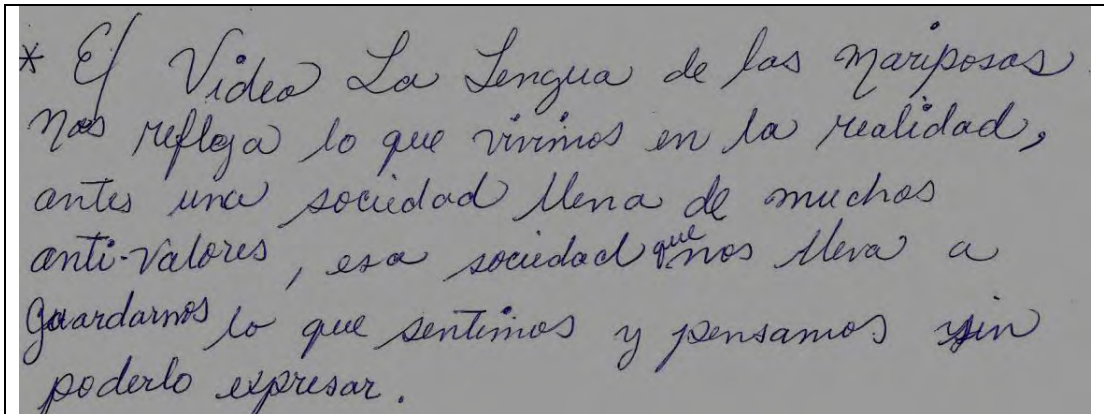 * El Video La Lengua de las Mariposas
nos refleja lo que vivimos en la realidad,
antes una sociedad llena de muchos
anti-valores, esa sociedad que nos lleva a
guardarnos lo que sentimos y pensamos sin
poderlo expresar.